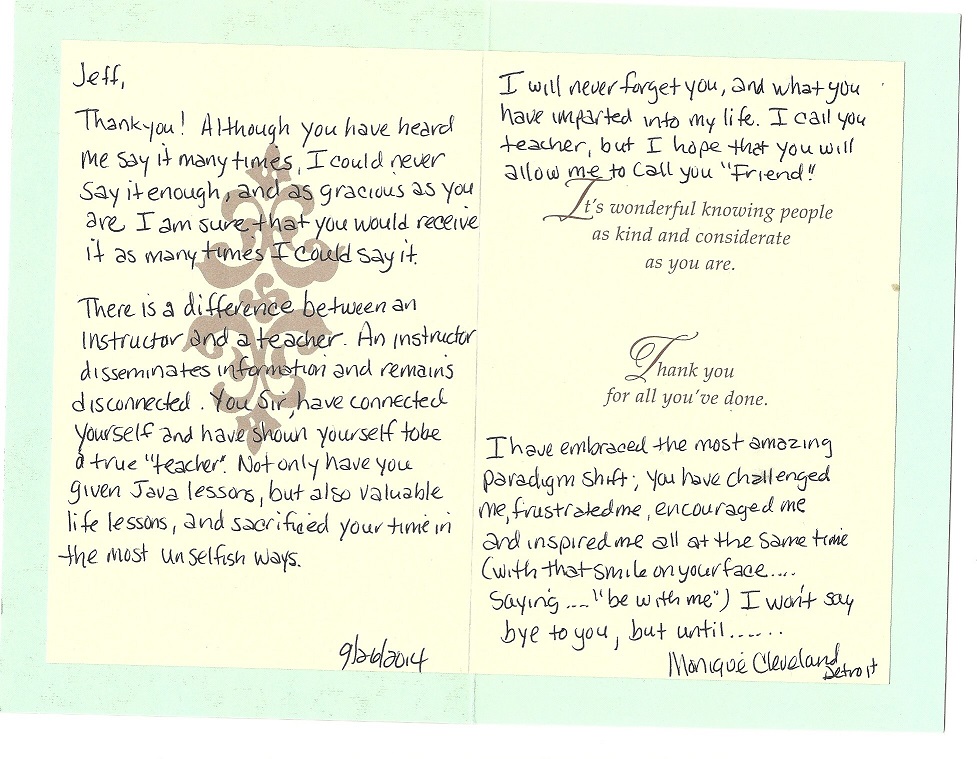 Jeff,
Thankyou! Although you have heard
me say it many times, I could never
say it enough, and as gracious as you
are, I am sure that you would receive
it as many times I could say it.
There is a difference between an
instructor and a teacher. An instructor
disseminates information and remains
disconnected. You Sir, have connected
yourself and have shown yourself tobe
a true "teacher". Not only have you
given Java lessons, but also valuable
life lessons, and sacrificed your time in
the most unselfish ways.
9/26/2014
I will never forget you, and what you
have imparted into my life. I call you
teacher, but I hope that you will
allow me to call you "Friend!"
It's wonderful knowing people
as kind and considerate
as you are.
Thank you
for all you've done.
I have embraced the most amazing
paradigm shift; you have challenged
me, frustrated me, encouraged me
and inspired me all at the same time
(with that smile on your face....
saying .... "be with me") I won't say
bye to you, but until......
Monique Cleveland
Detroit